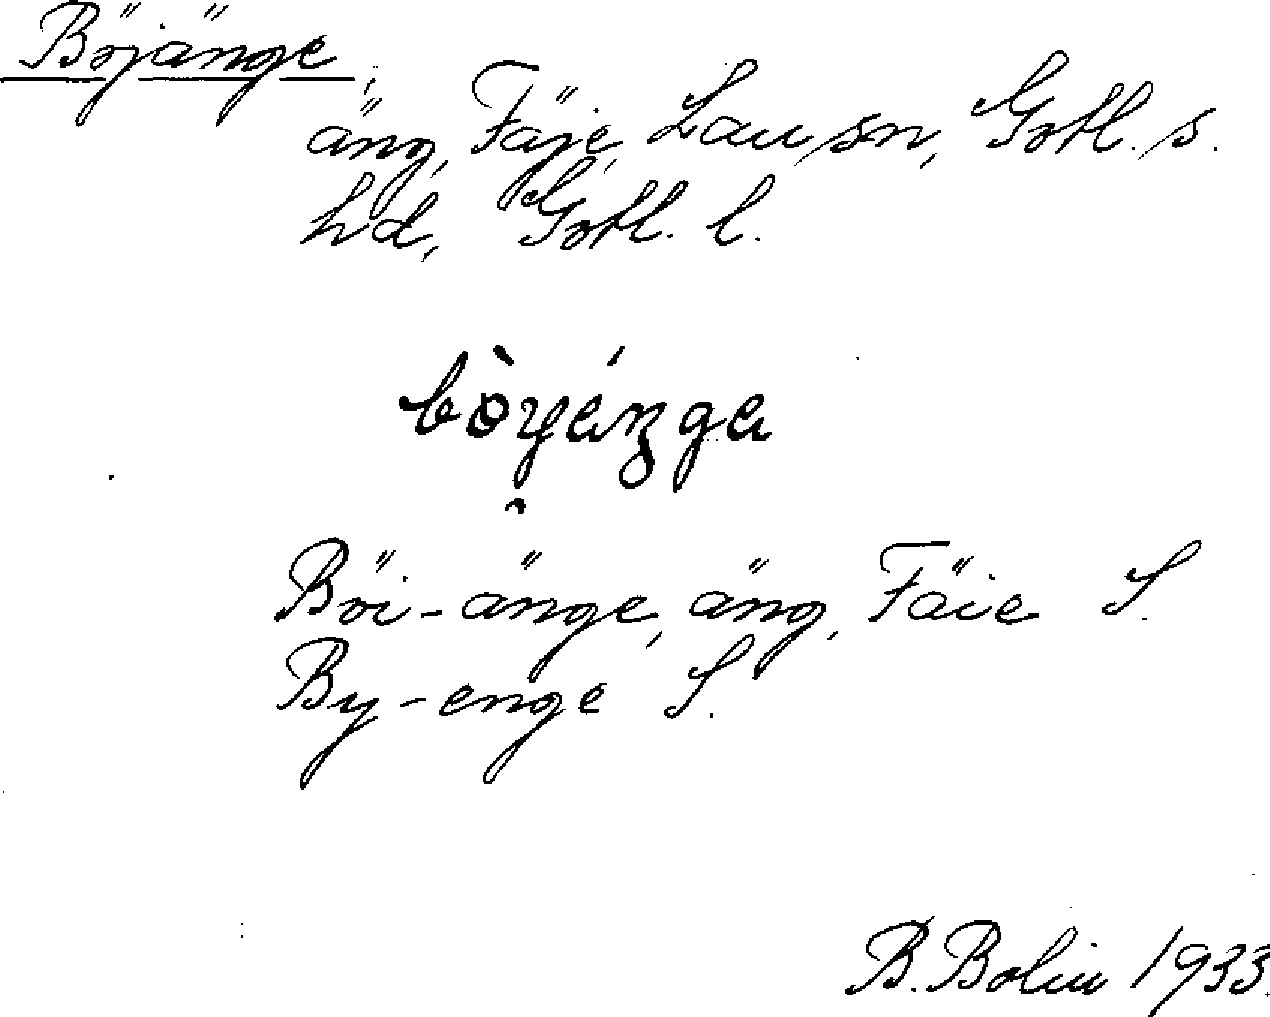 Böjänge,
äng, Fäje, Lau sn, Gotl. s.
hd, Gotl. l.
Böi-änge, äng, Fäie S.
By-enge S.
B. Bolin 1933.